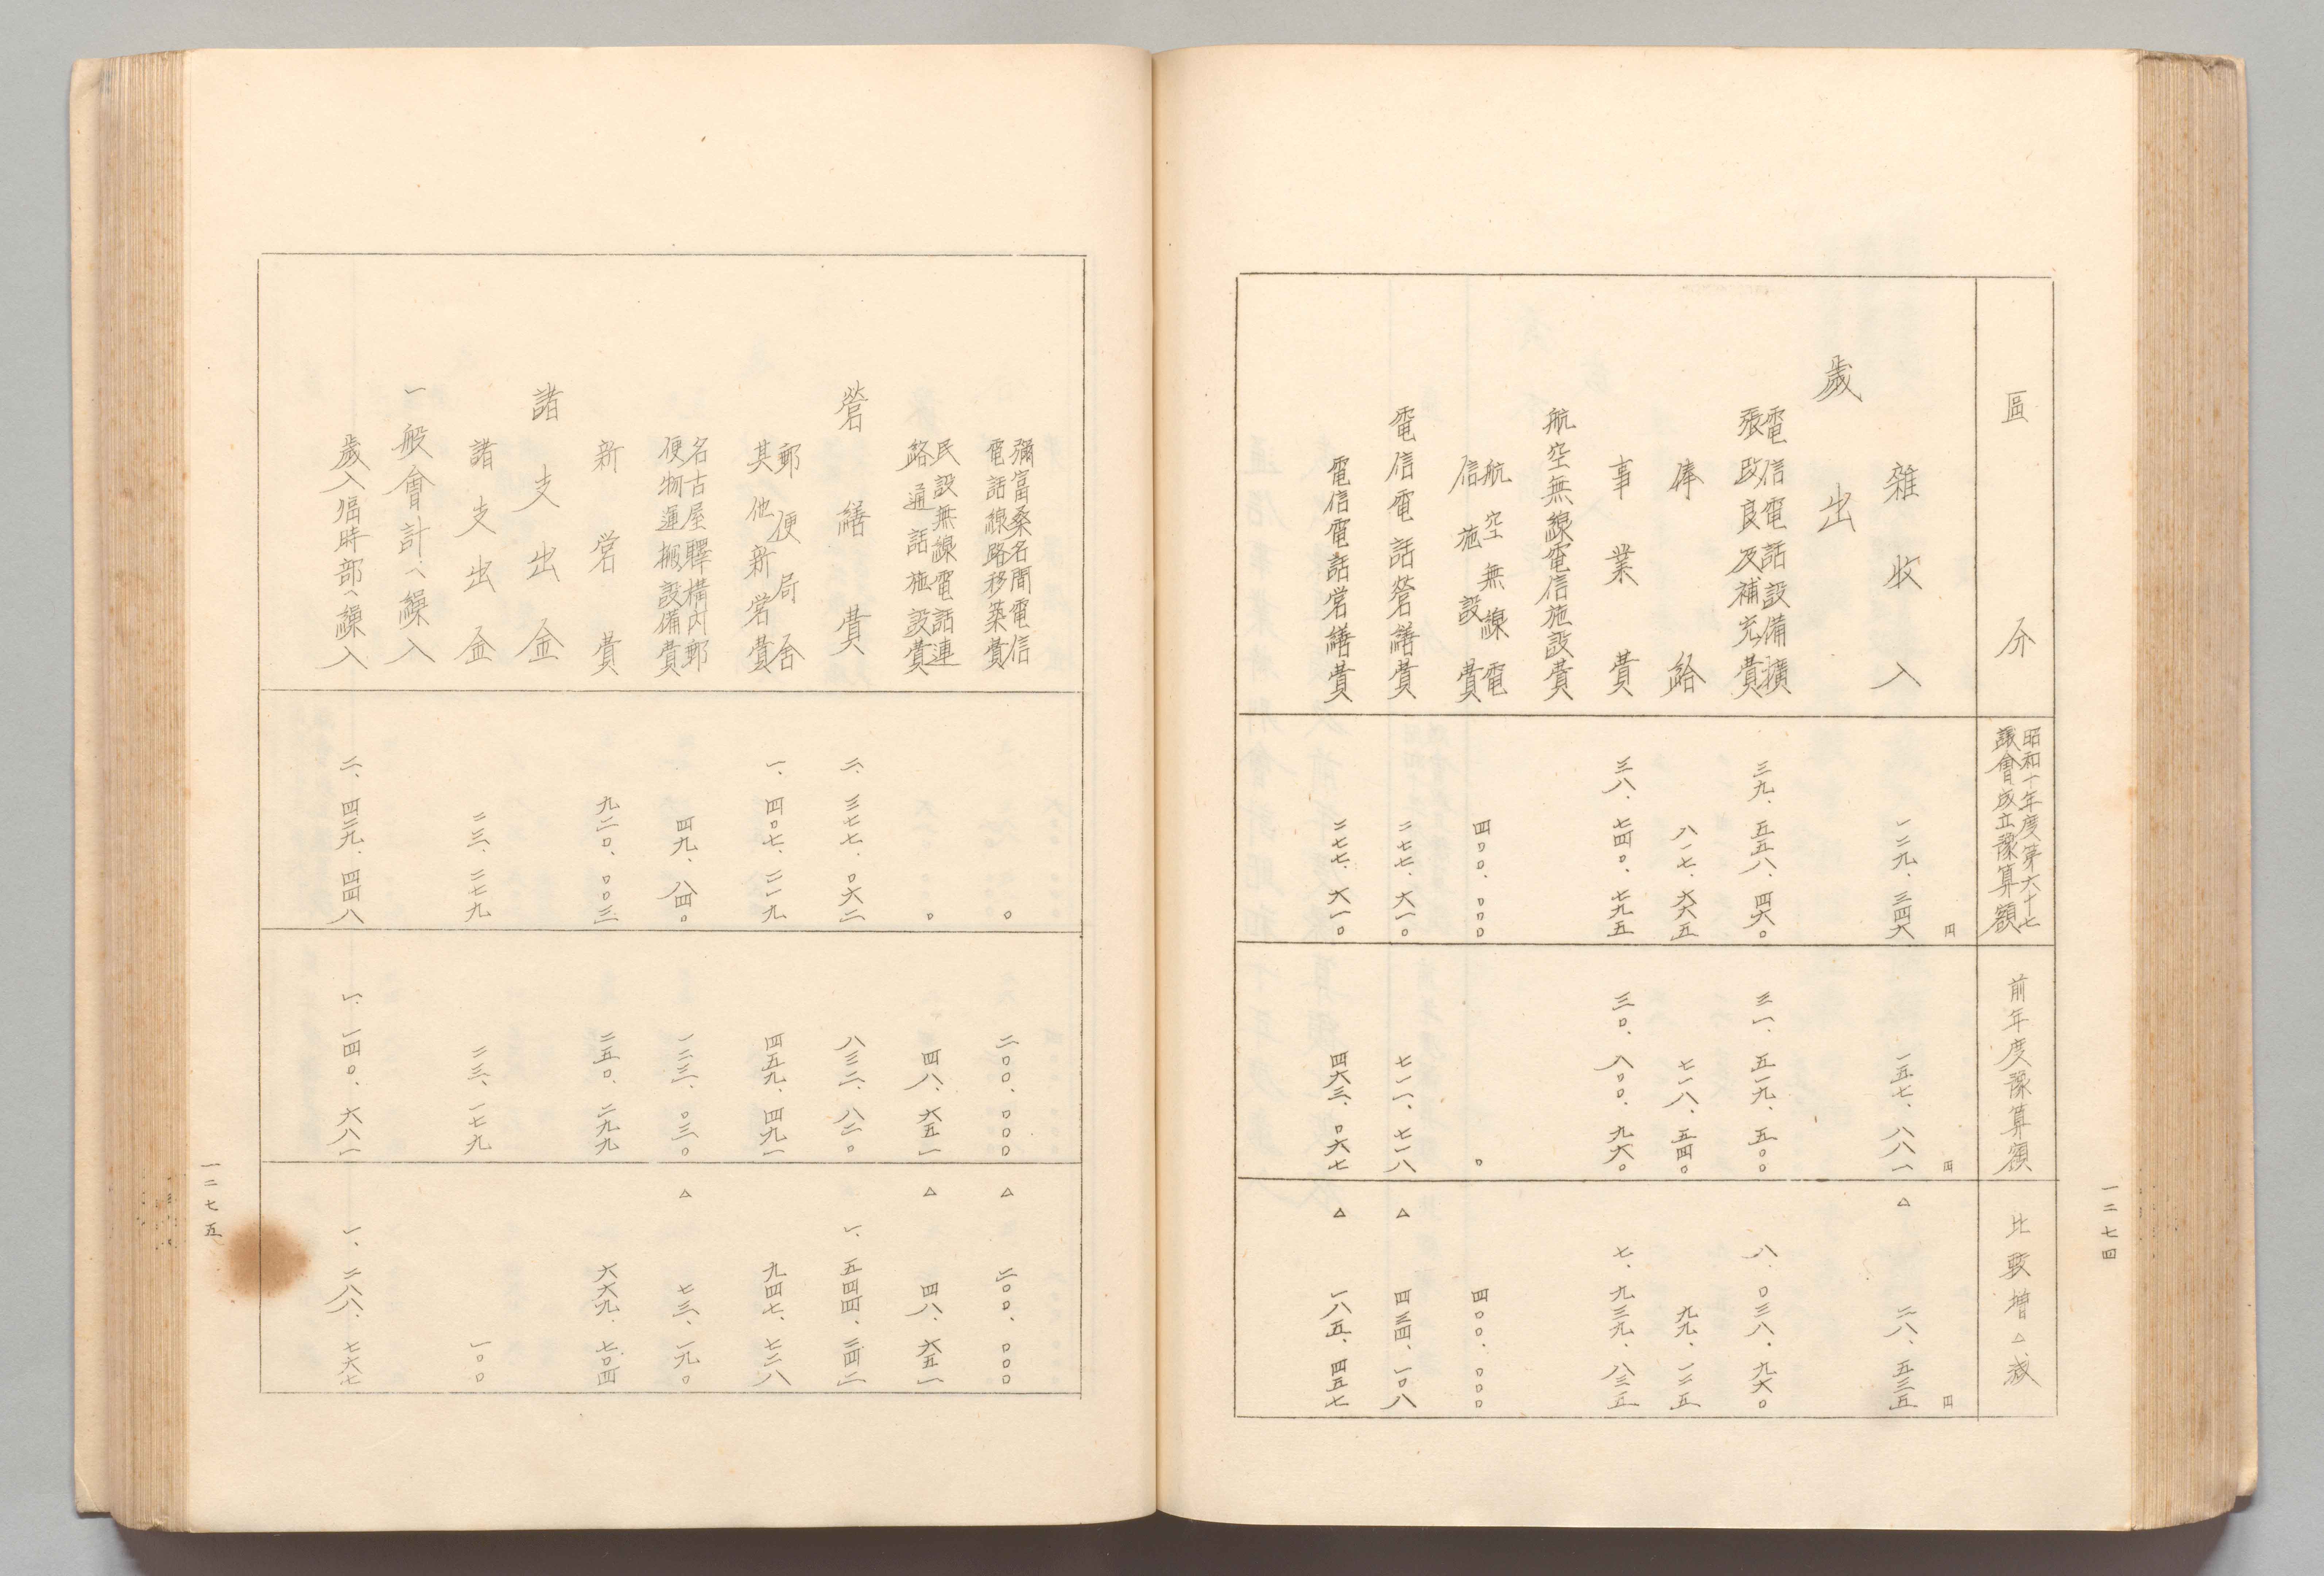 一二七四
區分
昭和十年度第六十七
議會成立豫算額
前年度豫算額
比較増△減
円
円
円
雜收入
一二九、三四六
一五七、八八一
△二八、五三五
歲出
電信電話設備擴
張改良及補充費
三九、五五八、四六〇
三一、五一九、五〇〇
八、〇三八、九六〇
俸給
八一七、六六五
七一八、五四〇
九九、一二五
事業費
三八、七四〇、七九五
三〇、八〇〇、九六〇
七、九三九、八三五
航空無線電信施設費
航空無線電
信施設費
四〇〇、〇〇〇
〇
四〇〇、〇〇〇
電信電話營繕費
二七七、六一〇
七一一、七一八
△四三四、一〇八
電信電話営繕費
二七七、六一〇
四六三、〇六七
△一八五、四五七
彌富桑名間電信
電話線路移築費
〇
二〇〇、〇〇〇
△二〇〇、〇〇〇
民設無線電話連
絡通話施設費
〇
四八、六五一
△四八、六五一
營繕費
二、三七七、〇六二
八三二、八二〇
一、五四四、二四二
郵便局舍
其他新営費
一、四〇七、二一九
四五九、四九一
九四七、七二八
名古屋驛構内郵
便物運搬設備費
四九、八四〇
一二三、〇三〇
△七三、一九〇
新営費
九二〇、〇〇三
二五〇、二九九
六六九、七〇四
諸支出金
諸支出金
二三、二七九
二三、一七九
一〇〇
一般會計へ繰入
歲入臨時部へ繰入
二、四二九、四四八
一、一四〇、六八一
一、二八八、七六七
一二七五